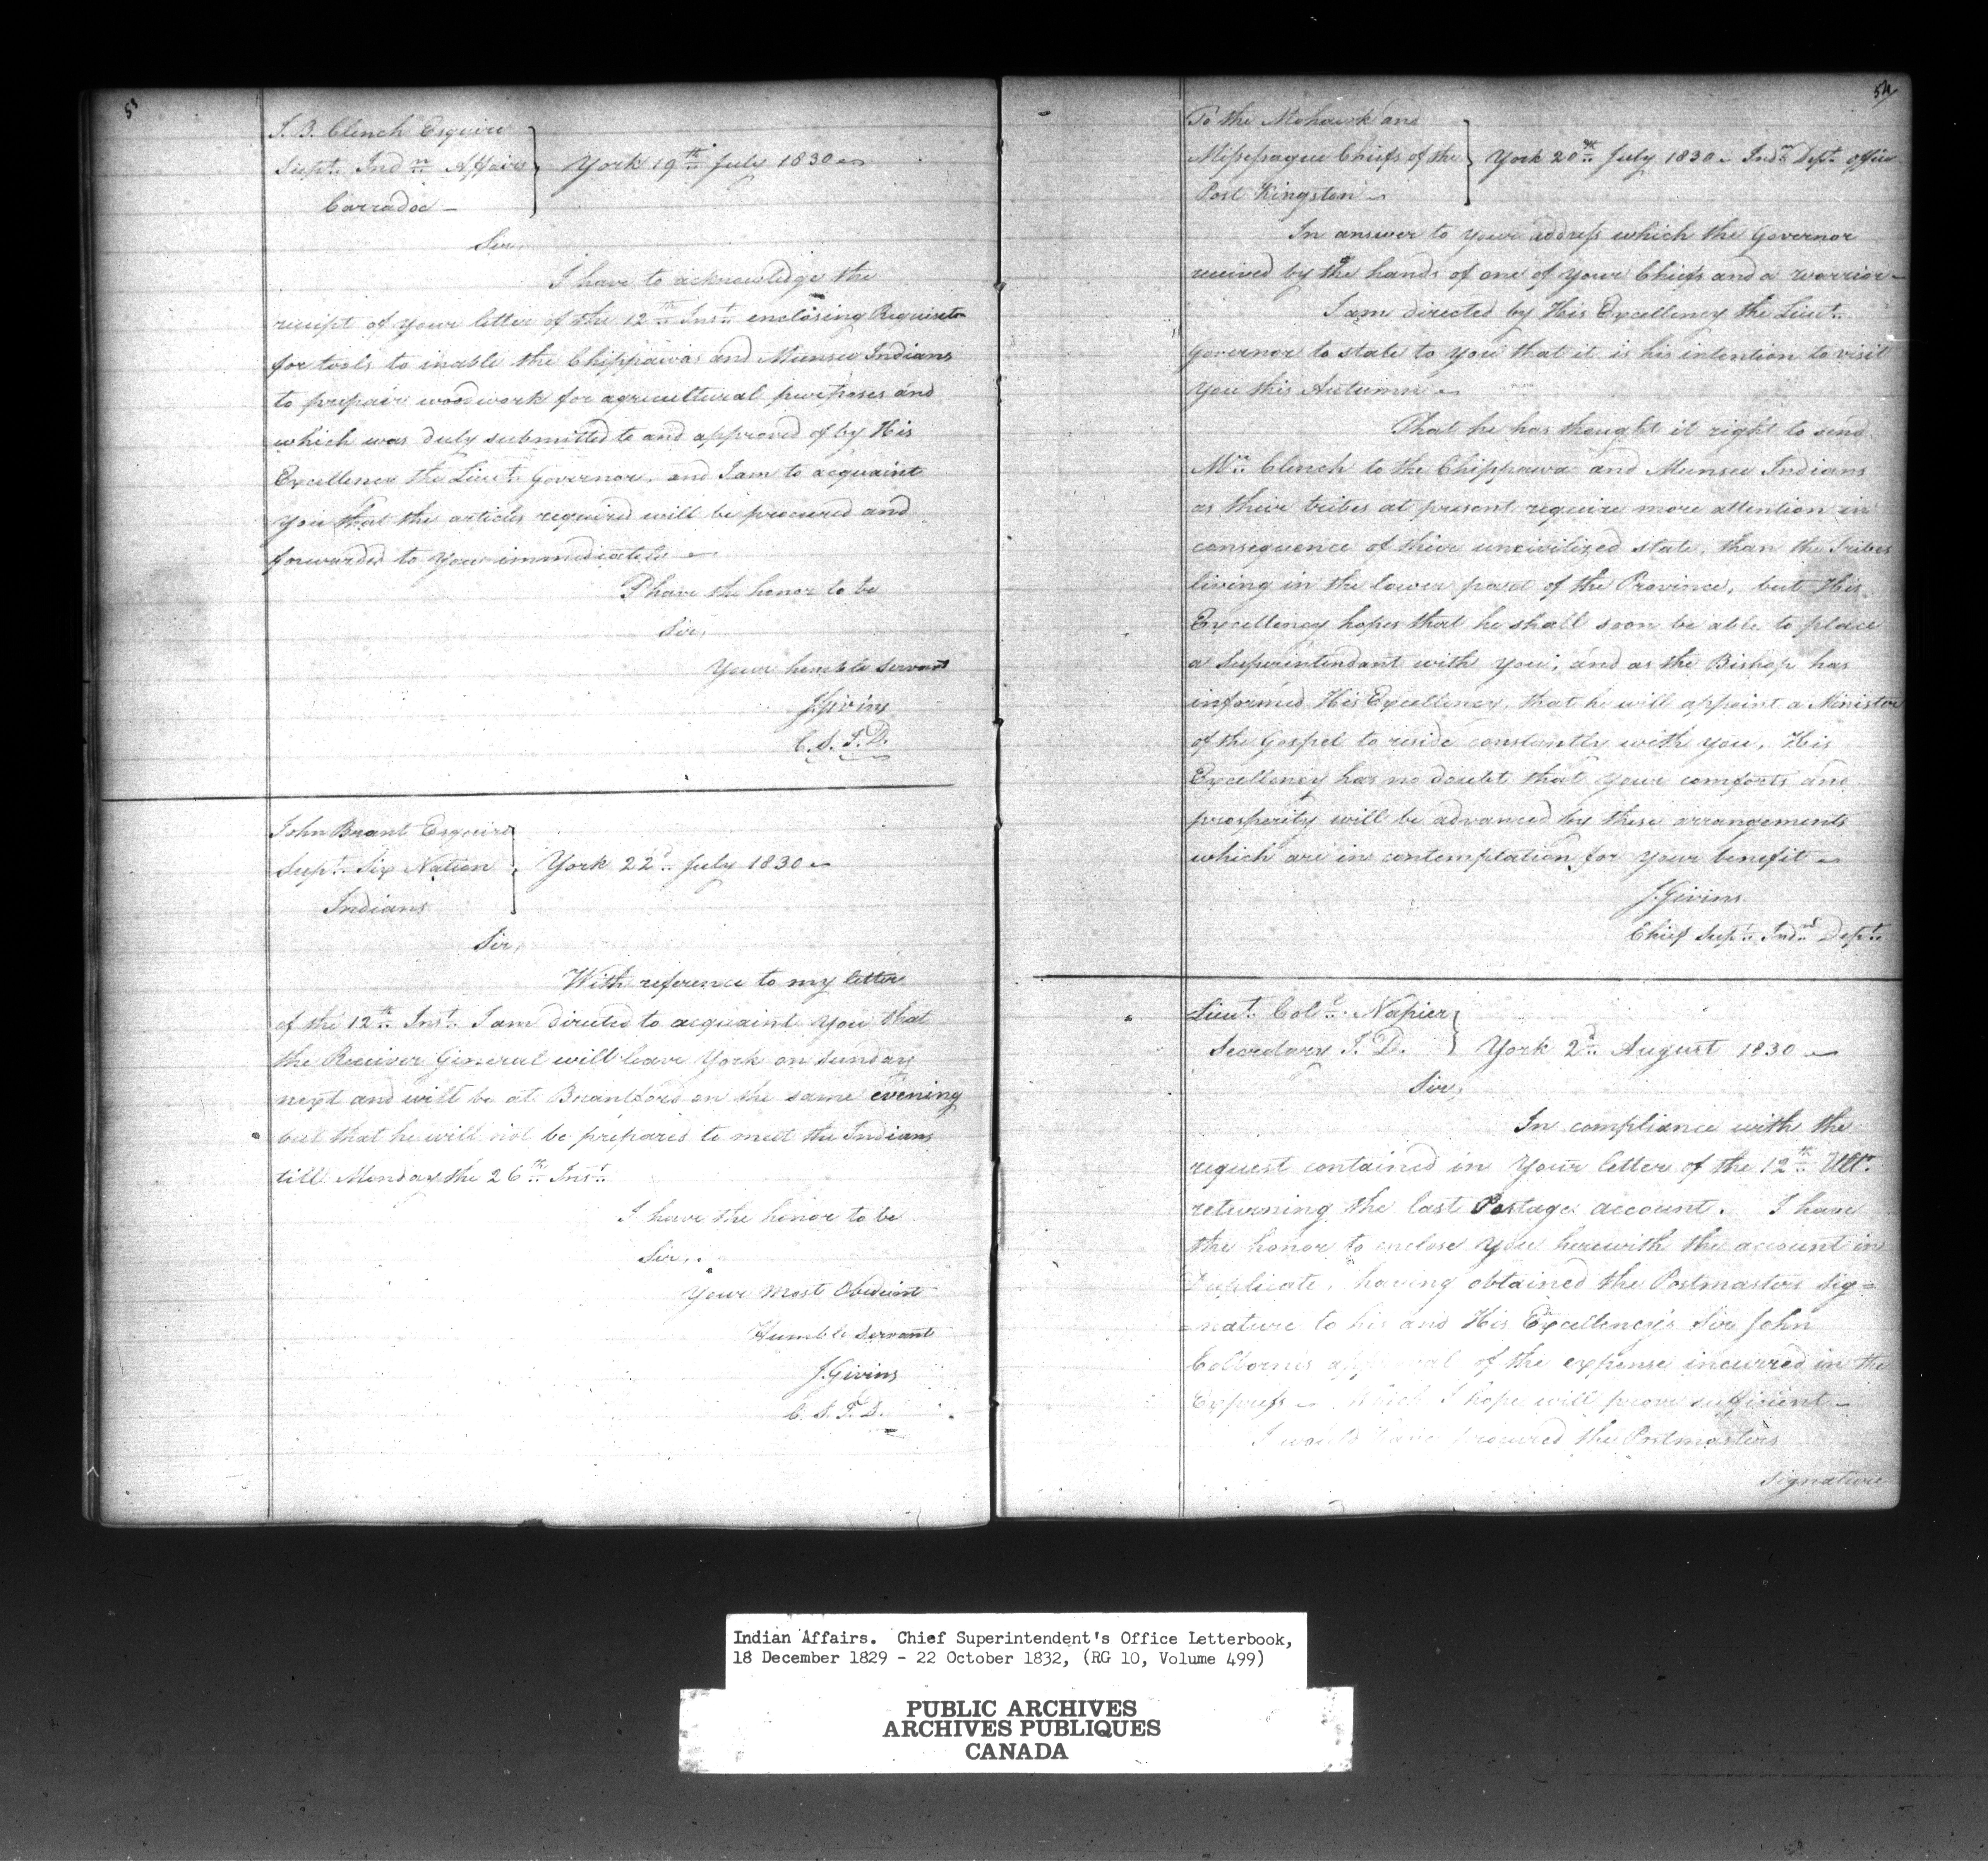 5
J. B. Clench Esquire
Supt. Indn Affairs } York 19th July 1830
Carradoc
Sir,
I have to acknowledge the
receipt of your letter of the 12th Inst. enclosing Requisitn
for tools to inable the Chippawa and Munsee Indians
to prepair woodwork for agricultural purposes and
which was duly submitted to and approved of by His
Excellency the Lieut. Governor, and I am to acquaint
you that the articles required will be procured and
forwarded to you immediately
I have the honor to be
Sir,
Your humble Servant
J. Givins
C. S. I. D.
John Brant Esquire
Supt. Six Nation } York 22d July 1830
Indians
Sir,
With reference to my letter
of the 12th Inst. I am directed to acquaint you that
the Receiver General will leave York on Sunday
next and will be at Brantford on the same evening
but that he will not be prepared to meet the Indians
till Monday the 26th Inst.
I have the honor to be
Sir,
Your Most Obedient
Humble Servant
J. Givins
C. S. I. D.
54
To the Mohawk and
Missepague Chiefs of the } York 20th July 1830 Indn Dept. office
Post Kingston
In answer to your address which the Governor
received by the hands of one of your Chiefs and a warrior
I am directed by His Excellency the Lieut.
Governor to state to you that it is his intention to visit
you this Autumn
That he has thought it right to send
Mr. Clench to the Chippawa and Munsee Indians
as their tribes at present require more attention in
consequence of their uncivilized state, than the Tribes
living in the lower part of the Province, but His
Excellency hopes that he shall soon be able to place
a Superintendant with you, and as the Bishop has
informed His Excellency, that he will appoint a Minister
of the Gospel to reside constantly with you, His
Excellency has no doubt that your comforts and
prosperity will be advanced by these arrangements
which are in contemplation for your benefit
J. Givins
Chief Supt. Indn Dept.
Lieut. Coll. Napier
Secretary I. D. } York 2d August 1830
Sir,
In compliance with the
request contained in Your letter of the 12th Ulto.
returning the last Postage account. I have
the honor to enclose you herewith the account in
Duplicate, having obtained the Postmasters Sig=
=nature to his and His Excellency's Sir John
Colbornes approval of the expense incurred in the
Express which I hope will prove sufficient
I would have procured the Postmasters
Signature
Indian Affairs. Chief Superintendent's Office Letterbook,
18 December 1829 - 22 October 1832, (RG 10, Volume 499)
PUBLIC ARCHIVES
ARCHIVES PUBLIQUES
CANADA